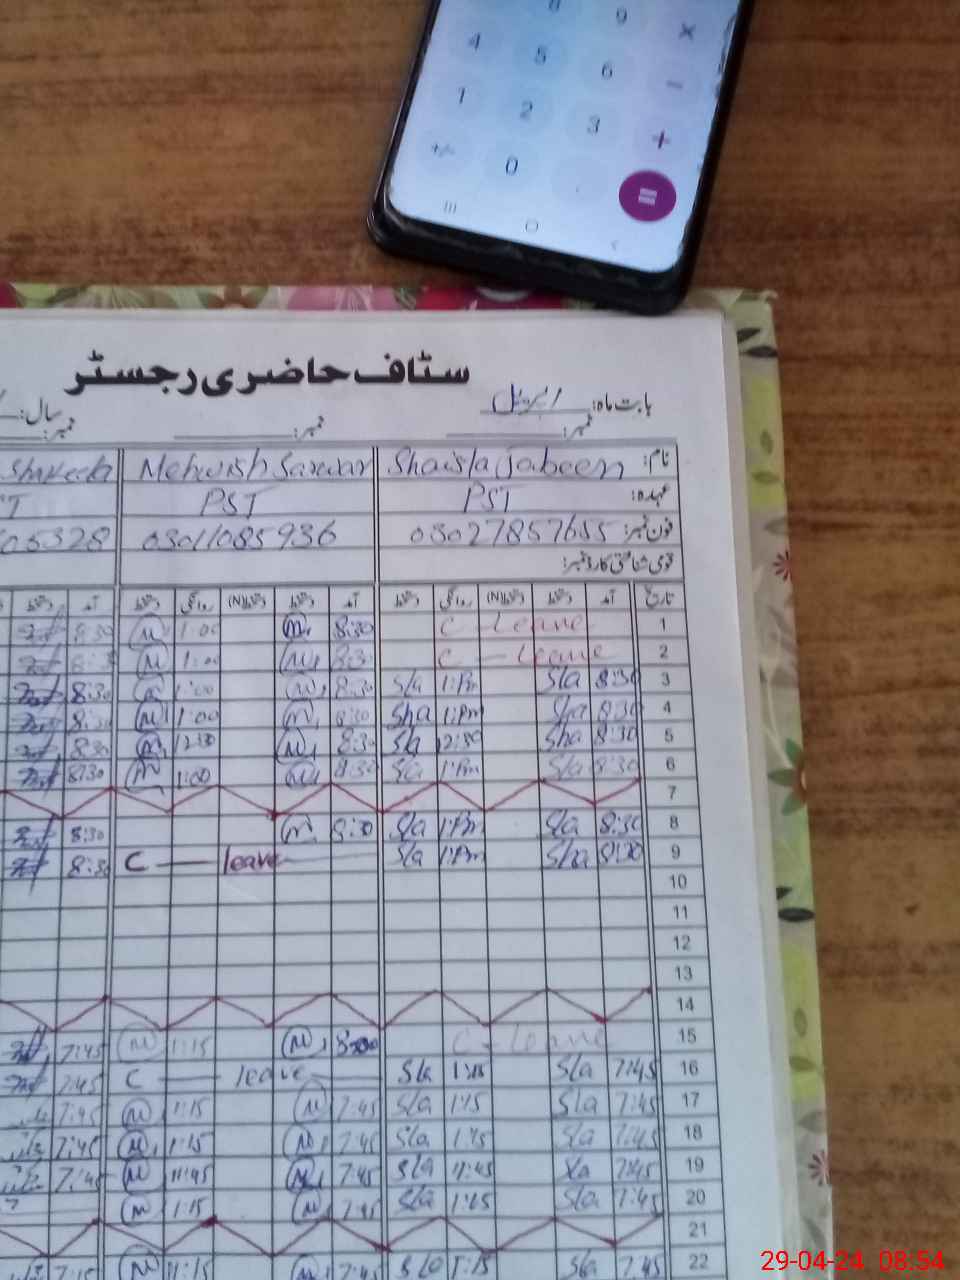 8 9 ×
4 5 6 −
1 2 3 +
+/- 0 . =
سٹاف حاضری رجسٹر
بابت ماہ: اپریل سال:
نمبر: نمبر: نمبر:
نام: Shaista Jabeen Mehwish Sarwar Shakeela
عہدہ: PST PST
فون نمبر: 03027857655 03011085936
قومی شناختی کارڈ نمبر:
تاریخ آمد دستخط دستخط(N) روانگی دستخط آمد دستخط دستخط(N) روانگی دستخط آمد دستخط
1 C - Leave 8:30 m 1:00 m 8:30
2 C - leave 8:30 m 1:00 m 8:3
3 8:30 Sla 1:Pm Sla 8:30 m 1:00 m 8:30
4 8:30 Sha 1:Pm Sha 8:30 m 1:00 m 8:30
5 8:30 Sha 12:30 Sla 8:30 m 12:30 m 8:30
6 8:30 Sla 1:Pm Sla 8:30 m 1:00 m 8:30
7
8 8:30 Sla 1:Pm Sla 8:30 m 8:30
9 8:30 Sha 1:Pm Sla C — leave 8:30
10
11
12
13
14
15 C - leave m 1:15 m 7:45
16 7:45 Sla 1:15 Sla C — leave 7:45
17 7:45 Sla 1:15 Sla 7:45 m 1:15 m 7:45
18 7:45 Sla 1:15 Sla 7:45 m 1:15 m 7:45
19 7:45 Sla 11:45 Sla 7:45 m 11:45 m 7:45
20 7:45 Sla 1:15 Sla 7:45 m 1:15 m
21
22 7:45 Sla 1:15 7:45 m 1:15 m 7:15
29-04-24 08:54